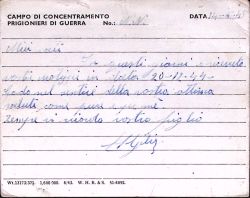 CAMPO DI CONCENTRAMENTO
PRIGIONIERI DI GUERRA
No.:
DATA
Miei cari
In questi giorni ò ricevuto
vostre notizie in data 20-12-44
Godo nel sentire della vostra ottima
salute come pure è per me.
Sempre vi ricorda vostro figlio
Wt.13172/371. 1,600,000. 6/43. W. H. & S. 51-6892.